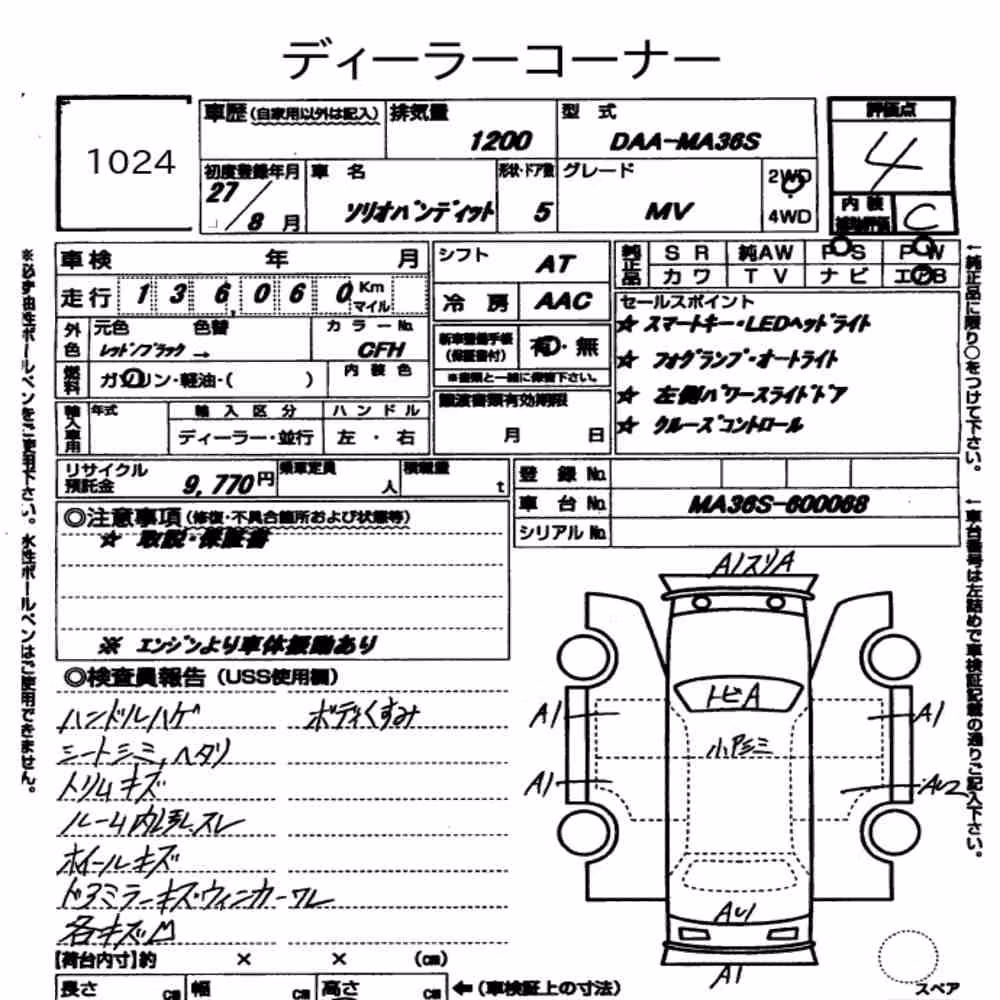 ディーラーコーナー
1024
車歴(自家用以外は記入) 排気量 1200 型式 DAA-MA36S 評価点 4
初度登録年月 27/8月 車名 ソリオバンディット 形状・ドア数 5 グレード MV 2WD・4WD 内装 C
車検 年 月 シフト AT 純正品 SR 純AW PS PW
走行 136,060 Km マイル 冷房 AAC カワ TV ナビ エアB
外色 元色 色替 カラーNo. セールスポイント
レッド/ブラック → CFH 新車整備手帳(保証書付) 有・無 ☆ スマートキー・LEDヘッドライト
燃料 ガソリン・軽油・( ) 内装色 ※書類と一緒に保管下さい。 ☆ フォグランプ・オートライト
輸入車用 年式 輸入区分 ハンドル 譲渡書類有効期限 ☆ 左側パワースライドドア
ディーラー・並行 左・右 月 日 ☆ クルーズコントロール
リサイクル預託金 9,770円 乗車定員 人 積載量 t 登録No.
車台No. MA36S-600068
シリアルNo.
◎注意事項(修復・不具合箇所および状態等)
☆ 取説・保証書
※ エンジンより車体振動あり
◎検査員報告(USS使用欄)
ハンドルハゲ ボディくすみ
シートシミ、ヘタリ
トリムキズ
ルーム内張スレ
ホイールキズ
ドアミラーキズ・ウィンカーワレ
各キズ凹
A1スリA
トビA
A1 A1
小アシミ
A1 AU2
AU1
A1
スペア
【荷台内寸】約 × × (cm)
長さ cm 幅 cm 高さ cm ←(車検証上の寸法)
※必ず油性ボールペンをご使用下さい。水性ボールペンはご使用できません。
←純正品に限り○をつけて下さい。
←車台番号は左詰めで車検証記載の通りご記入下さい。